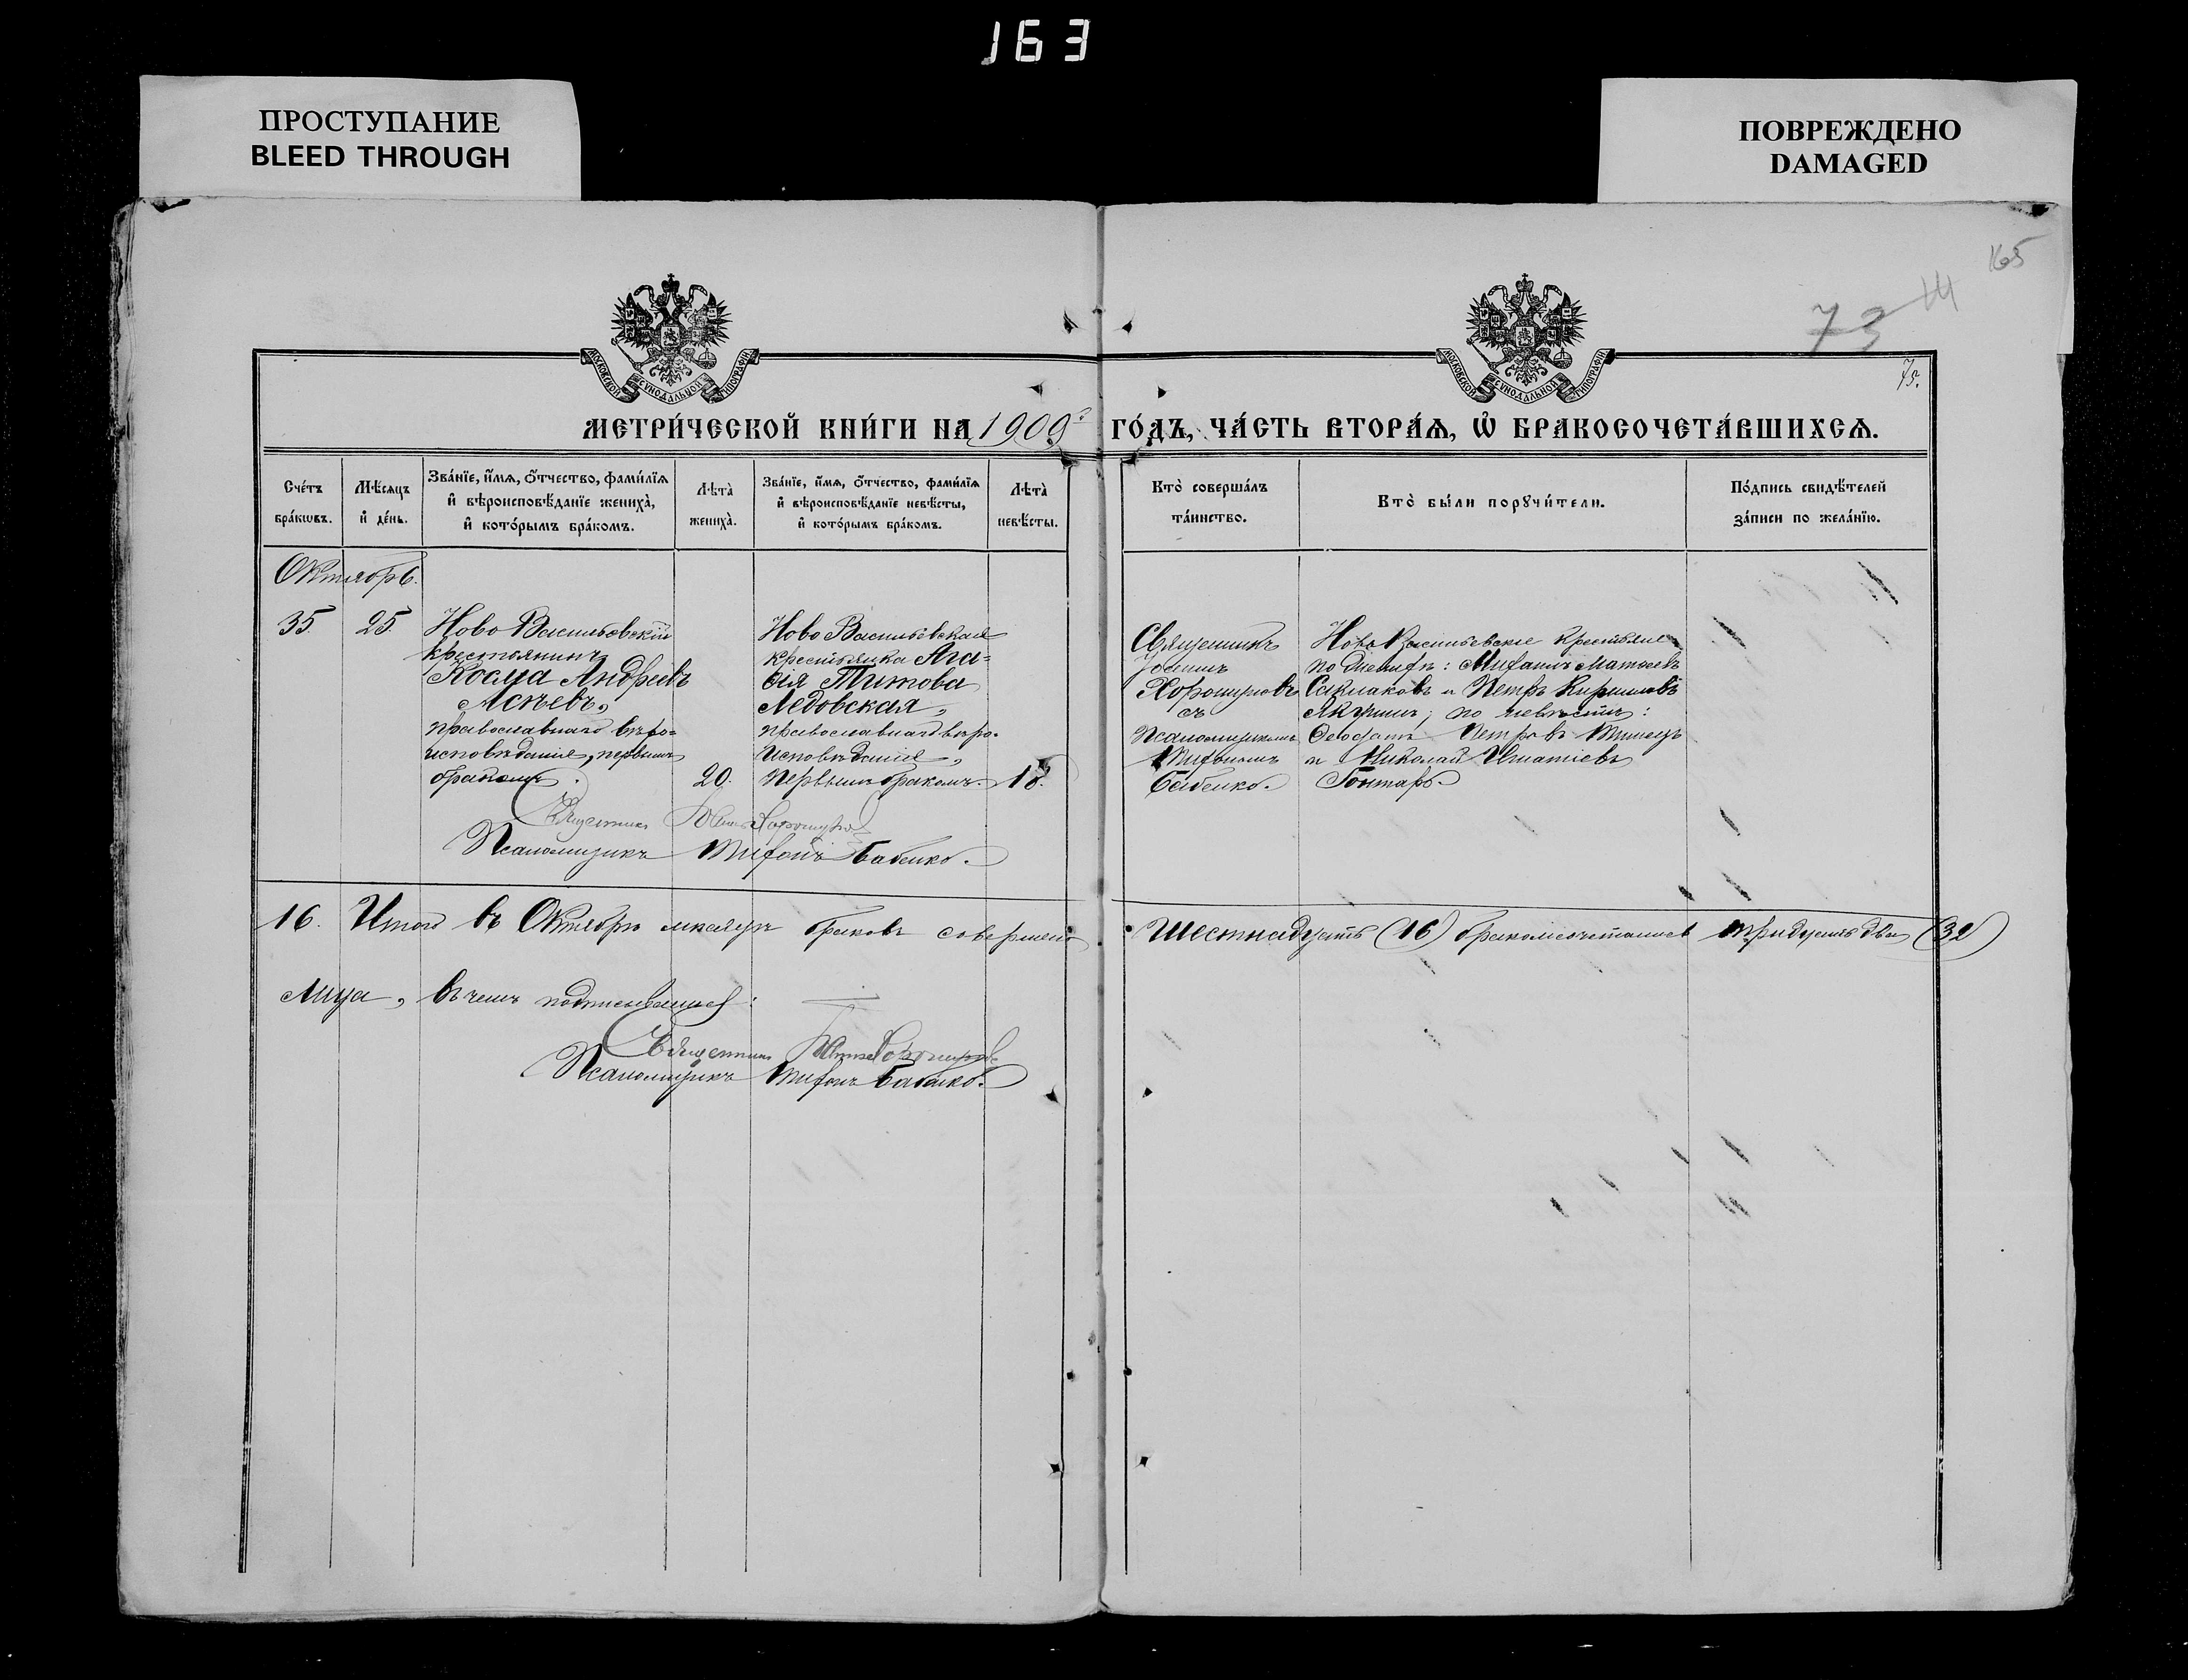 163
ПРОСТУПАНИЕ
BLEED THROUGH
ПОВРЕЖДЕНО
DAMAGED
165
73
75.
МОСКОВСКОЙ СѴНОДАЛЬНОЙ ТИПОГРАФІИ
МОСКОВСКОЙ СѴНОДАЛЬНОЙ ТИПОГРАФІИ
МЕТРИ́ЧЕСКОЙ КНИ́ГИ НА 1909 ГО́ДЪ, ЧА́СТЬ ВТОРА́Ѧ, Ѽ БРАКОСОЧЕТА́ВШИХСѦ.
Сче́тъ бра́кѡвъ.
Мѣ́сяцъ и҆ де́нь.
Зва́нїе, и҆́мѧ, ѻ҆́тчество, фами́лїѧ и҆ вѣроисповѣ́данїе жениха̀, и҆ кото́рымъ бра́комъ.
Лѣта̀ жениха̀.
Зва́нїе, и҆́мѧ, ѻ҆́тчество, фами́лїѧ и҆ вѣроисповѣ́данїе невѣ́сты, и҆ кото́рымъ бра́комъ.
Лѣта̀ невѣ́сты.
Кто̀ соверша́лъ та́инство.
Кто̀ бы́ли порꙋчи́тели.
По́дпись свидѣ́телей за́писи по жела́нїю.
Октябрь.
35. 25.
Ново Васильевскій
крестьянинъ
Косма Андреевъ
Асѣевъ,
православнаго вѣро=
исповѣданія, первымъ
бракомъ.
20.
Ново Васильевская
крестьянка Ага=
ѳія Титова
Ледовская,
православнаго вѣро-
исповѣданія,
первымъ бракомъ.
18.
Священникъ
Іоаннъ
Хорошуновъ
съ
псаломщикомъ
Трифономъ
Бабенко.
Ново Васильевские крестьяне
по женихѣ: Михаилъ Матвеевъ
Саклаковъ и Петръ Кирилловъ
Якунинъ; по невѣстѣ:
Ѳеодотъ Петровъ
и Николай Игнатіевъ
Гонтарь.
Священникъ Іоаннъ Хорошуновъ
Псаломщикъ Трифонъ Бабенко.
16. Итого въ Октябрѣ мѣсяцѣ браковъ совершено Шестнадцать (16) бракосочеталися тридцать два (32)
лица, въ чемъ подписываемся:
Священникъ Іоаннъ Хорошуновъ
Псаломщикъ Трифонъ Бабенко.